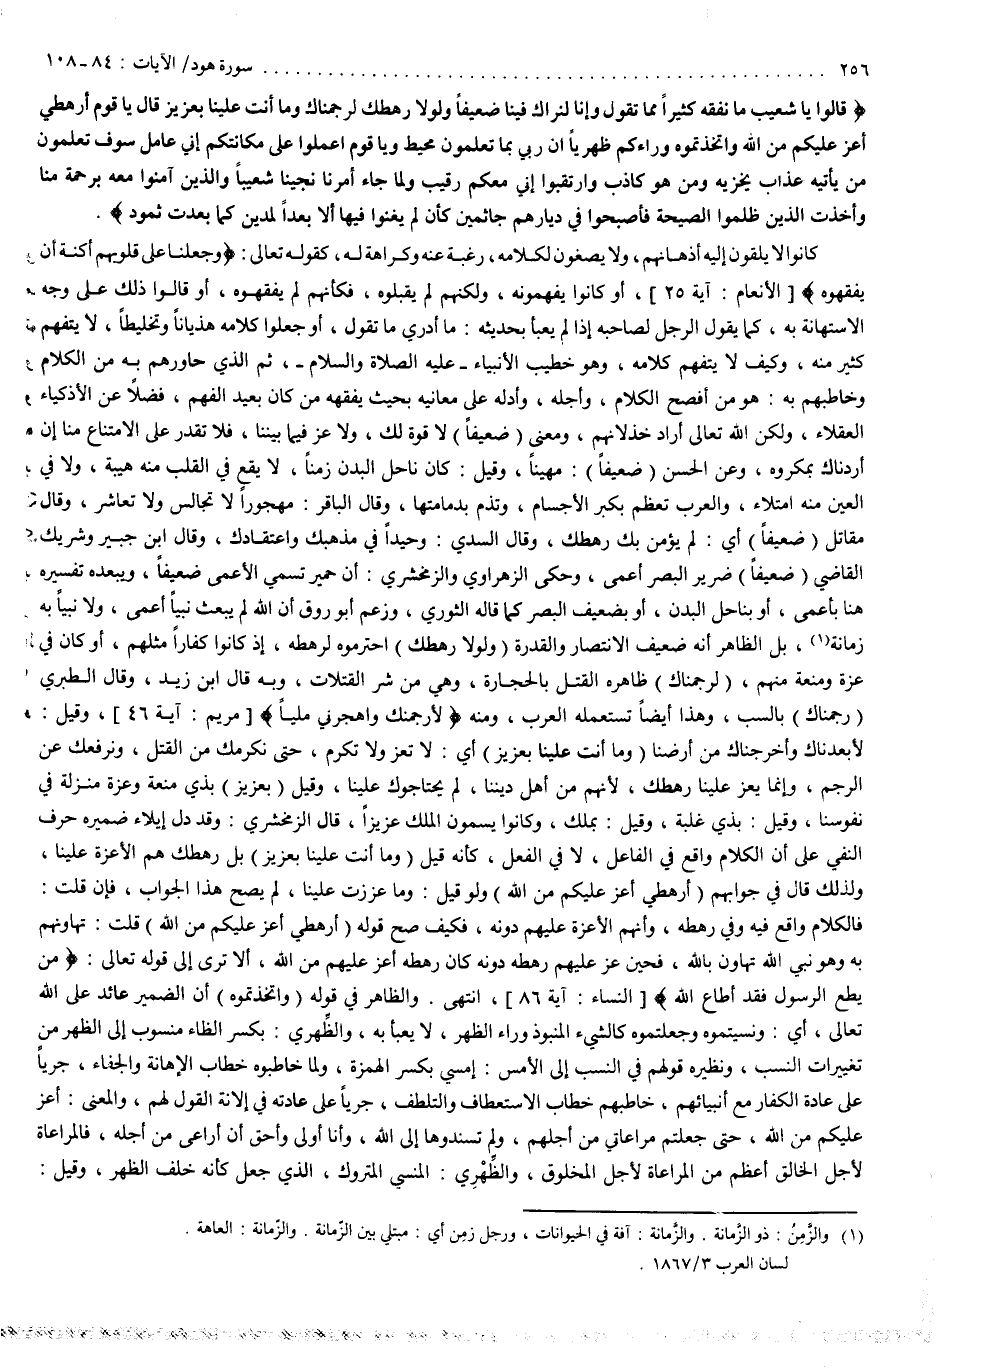 ٢٥٦ ........ سورة هود/ الآيات : ٨٤ـ١٠٨
﴿ قالوا يا شعيب ما نفقه كثيراً مما تقول وإنا لنراك فينا ضعيفاً ولولا رهطك لرجمناك وما أنت علينا بعزيز قال يا قوم أرهطي
أعز عليكم من الله واتخذتموه وراءكم ظهرياً ان ربي بما تعلمون محيط ويا قوم اعملوا على مكانتكم إني عامل سوف تعلمون
من يأتيه عذاب يخزيه ومن هو كاذب وارتقبوا إني معكم رقيب ولما جاء أمرنا نجينا شعيباً والذين آمنوا معه برحمة منا
وأخذت الذين ظلموا الصيحة فأصبحوا في ديارهم جاثمين كأن لم يغنوا فيها ألا بعداً لمدين كما بعدت ثمود ﴾ .
كانوا لا يلقون إليه أذهانهم ، ولا يصغون لكلامه ، رغبة عنه وكراهة له ، كقوله تعالى : ﴿ وجعلنا على قلوبهم أكنة أن
يفقهوه ﴾ [ الأنعام : آية ٢٥ ] ، أو كانوا يفهمونه ، ولكنهم لم يقبلوه ، فكأنهم لم يفقهوه ، أو قالوا ذلك على وجه
الاستهانة به ، كما يقول الرجل لصاحبه إذا لم يعبأ بحديثه : ما أدري ما تقول ، أو جعلوا كلامه هذياناً وتخليطاً ، لا يتفهم
كثير منه ، وكيف لا يتفهم كلامه ، وهو خطيب الأنبياء ـ عليه الصلاة والسلام ـ ، ثم الذي حاورهم به من الكلام
وخاطبهم به : هو من أفصح الكلام ، وأجله ، وأدله على معانيه بحيث يفقهه من كان بعيد الفهم ، فضلاً عن الأذكياء
العقلاء ، ولكن الله تعالى أراد خذلانهم ، ومعنى ( ضعيفاً ) لا قوة لك ، ولا عز فيما بيننا ، فلا تقدر على الامتناع منا إن
أردناك بمكروه ، وعن الحسن ( ضعيفاً ) : مهيناً ، وقيل : كان ناحل البدن زمناً ، لا يقع في القلب منه هيبة ، ولا في
العين منه امتلاء ، والعرب تعظم بكبر الأجسام ، وتذم بدمامتها ، وقال الباقر : مهجوراً لا تجالس ولا تعاشر ، وقال
مقاتل ( ضعيفاً ) أي : لم يؤمن بك رهطك ، وقال السدي : وحيداً في مذهبك واعتقادك ، وقال ابن جبير وشريك
القاضي ( ضعيفاً ) ضرير البصر أعمى ، وحكى الزهراوي والزمخشري : أن حمير تسمي الأعمى ضعيفاً ، ويبعده تفسيره
هنا بأعمى ، أو بناحل البدن ، أو بضعيف البصر كما قاله الثوري ، وزعم أبو روق أن الله لم يبعث نبياً أعمى ، ولا نبياً به
زمانة(١) ، بل الظاهر أنه ضعيف الانتصار والقدرة ( ولولا رهطك ) احترموه لرهطه ، إذ كانوا كفاراً مثلهم ، أو كان في
عزة ومنعة منهم ، ( لرجمناك ) ظاهره القتل بالحجارة ، وهي من شر القتلات ، وبه قال ابن زيد ، وقال الطبري
( رجمناك ) بالسب ، وهذا أيضاً تستعمله العرب ، ومنه ﴿ لأرجمنك واهجرني ملياً ﴾ [ مريم : آية ٤٦ ] ، وقيل :
لأبعدناك وأخرجناك من أرضنا ( وما أنت علينا بعزيز ) أي : لا تعز ولا تكرم ، حتى نكرمك من القتل ، ونرفعك عن
الرجم ، وإنما يعز علينا رهطك ، لأنهم من أهل ديننا ، لم يحتاجوك علينا ، وقيل ( بعزيز ) بذي منعة وعزة منزلة في
نفوسنا ، وقيل : بذي غلبة ، وقيل : بملك ، وكانوا يسمون الملك عزيزاً ، قال الزمخشري : وقد دل إيلاء ضميره حرف
النفي على أن الكلام واقع في الفاعل ، لا في الفعل ، كأنه قيل ( وما أنت علينا بعزيز ) بل رهطك هم الأعزة علينا ،
ولذلك قال في جوابهم ( أرهطي أعز عليكم من الله ) ولو قيل : وما عززت علينا ، لم يصح هذا الجواب ، فإن قلت :
فالكلام واقع فيه وفي رهطه ، وأنهم الأعزة عليهم دونه ، فكيف صح قوله ( أرهطي أعز عليكم من الله ) قلت : تهاونهم
به وهو نبي الله تهاون بالله ، فحين عز عليهم رهطه دونه كان رهطه أعز عليهم من الله ، ألا ترى إلى قوله تعالى : ﴿ من
يطع الرسول فقد أطاع الله ﴾ [ النساء : آية ٨٦ ] ، انتهى . والظاهر في قوله ( واتخذتموه ) أن الضمير عائد على الله
تعالى ، أي : ونسيتموه وجعلتموه كالشيء المنبوذ وراء الظهر ، لا يعبأ به ، والظِّهري : بكسر الظاء منسوب إلى الظهر من
تغييرات النسب ، ونظيره قولهم في النسب إلى الأمس : إمسي بكسر الهمزة ، ولما خاطبوه خطاب الإهانة والجفاء ، جرياً
على عادة الكفار مع أنبيائهم ، خاطبهم خطاب الاستعطاف والتلطف ، جرياً على عادته في إلانة القول لهم ، والمعنى : أعز
عليكم من الله ، حتى جعلتم مراعاتي من أجلهم ، ولم تسندوها إلى الله ، وأنا أولى وأحق أن أراعى من أجله ، فالمراعاة
لأجل الخالق أعظم من المراعاة لأجل المخلوق ، والظِّهْرِي : المنسي المتروك ، الذي جعل كأنه خلف الظهر ، وقيل :
(١) والزَّمِنُ : ذو الزَّمانة . والزَّمانة : آفة في الحيوانات ، ورجل زمِن أي : مبتلي بين الزّمانة . والزّمانة : العاهة .
لسان العرب ١٨٦٧/٣ .